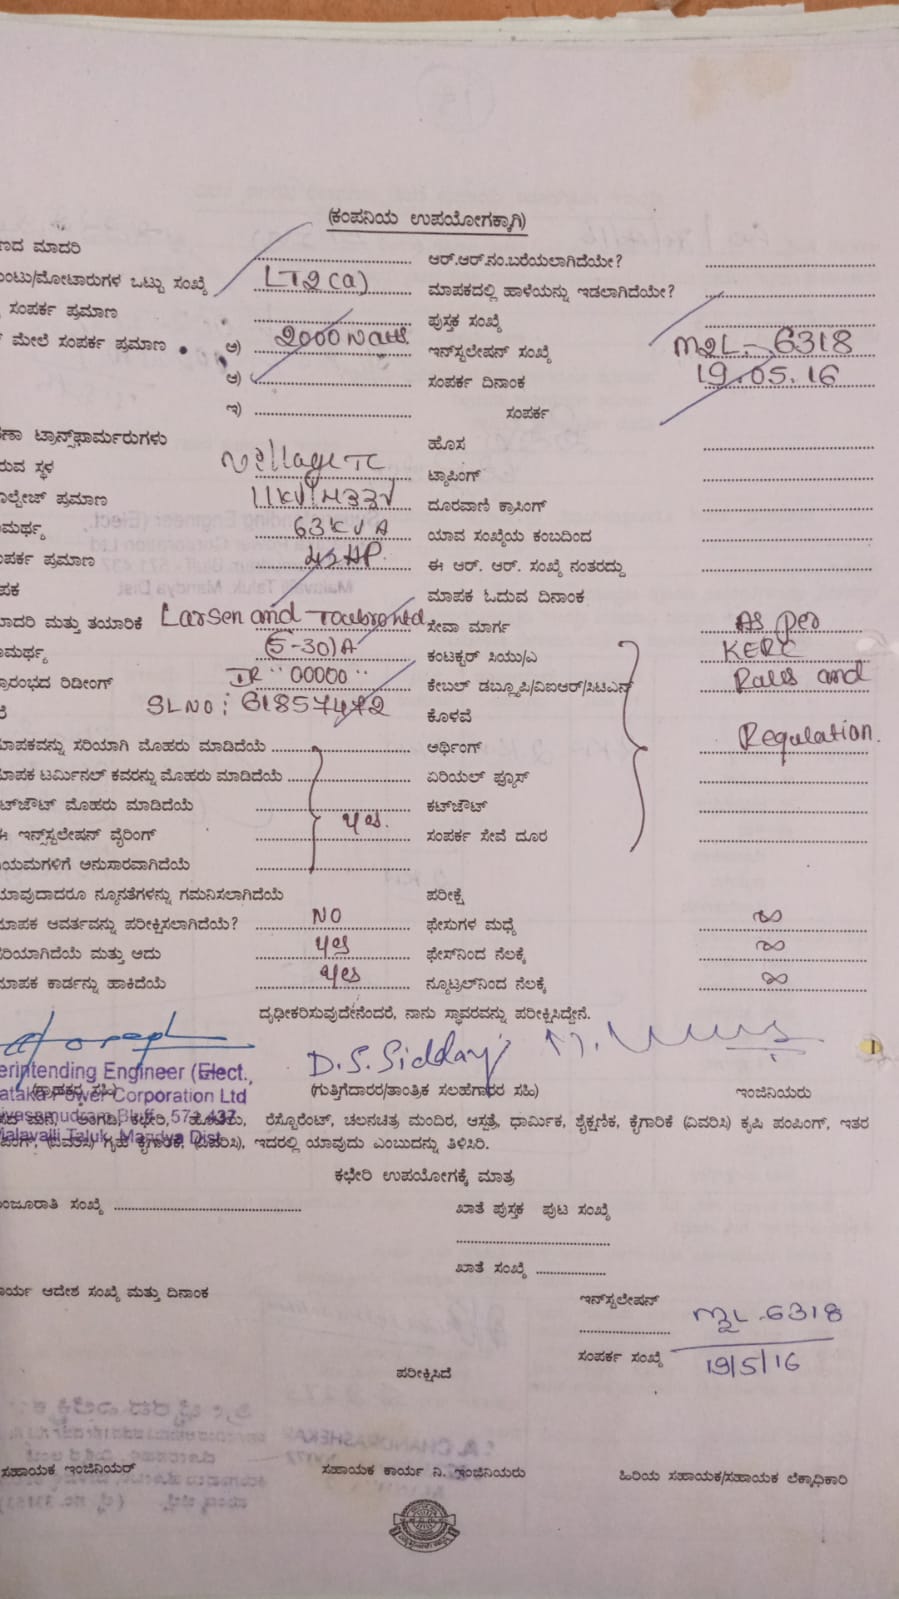 (ಕಂಪನಿಯ ಉಪಯೋಗಕ್ಕಾಗಿ)
ಣದ ಮಾದರಿ ಆರ್.ಆರ್.ನಂ.ಬರೆಯಲಾಗಿದೆಯೇ?
ಂಟು/ಮೋಟಾರುಗಳ ಒಟ್ಟು ಸಂಖ್ಯೆ LT2(a) ಮಾಪಕದಲ್ಲಿ ಹಾಳೆಯನ್ನು ಇಡಲಾಗಿದೆಯೇ?
ಸಂಪರ್ಕ ಪ್ರಮಾಣ ಪುಸ್ತಕ ಸಂಖ್ಯೆ
ಮೇಲೆ ಸಂಪರ್ಕ ಪ್ರಮಾಣ ಅ) 2000 Watts. ಇನ್‌ಸ್ಟಲೇಷನ್ ಸಂಖ್ಯೆ M2L-6318
ಆ) ಸಂಪರ್ಕ ದಿನಾಂಕ 19.05.16
ಇ) ಸಂಪರ್ಕ
ಣಾ ಟ್ರಾನ್ಸ್‌ಫಾರ್ಮರುಗಳು ಹೊಸ
ರುವ ಸ್ಥಳ Village TC ಟ್ಯಾಪಿಂಗ್
ೋಲ್ಟೇಜ್ ಪ್ರಮಾಣ 11KV/433V ದೂರವಾಣಿ ಕ್ರಾಸಿಂಗ್
ಾಮರ್ಥ್ಯ 63KVA ಯಾವ ಸಂಖ್ಯೆಯ ಕಂಬದಿಂದ
ಂಪರ್ಕ ಪ್ರಮಾಣ 42HP. ಈ ಆರ್. ಆರ್. ಸಂಖ್ಯೆ ನಂತರದ್ದು
ಪಕ ಮಾಪಕ ಓದುವ ದಿನಾಂಕ
ಾದರಿ ಮತ್ತು ತಯಾರಿಕೆ Larsen and Toubro Ltd ಸೇವಾ ಮಾರ್ಗ As per
ಾಮರ್ಥ್ಯ (5-30)A ಕಂಟಕ್ಟರ್ ಸಿಯು/ಎ KERC
್ರಾರಂಭದ ರಿಡೀಂಗ್ IR "00000" ಕೇಬಲ್ ಡಬ್ಲ್ಯೂಪಿ/ವಿಐಆರ್/ಸಿಟಿಎಸ್ Rules and
SLNO: 61857472 ಕೊಳವೆ
ಮಾಪಕವನ್ನು ಸರಿಯಾಗಿ ಮೊಹರು ಮಾಡಿದೆಯೆ ಆರ್ಥಿಂಗ್ Regulation.
ಮಾಪಕ ಟರ್ಮಿನಲ್ ಕವರನ್ನು ಮೊಹರು ಮಾಡಿದೆಯೆ ಏರಿಯಲ್ ಫ್ಯೂಸ್
ಟ್‌ಔಟ್ ಮೊಹರು ಮಾಡಿದೆಯೆ yes. ಕಟ್‌ಔಟ್
ಈ ಇನ್‌ಸ್ಟಲೇಷನ್ ವೈರಿಂಗ್ ಸಂಪರ್ಕ ಸೇವೆ ದೂರ
ಿಯಮಗಳಿಗೆ ಅನುಸಾರವಾಗಿದೆಯೆ
ಯಾವುದಾದರೂ ನ್ಯೂನತೆಗಳನ್ನು ಗಮನಿಸಲಾಗಿದೆಯೆ ಪರೀಕ್ಷೆ
ಮಾಪಕ ಆವರ್ತವನ್ನು ಪರೀಕ್ಷಿಸಲಾಗಿದೆಯೆ? NO ಫೇಸುಗಳ ಮಧ್ಯೆ ∞
ಸರಿಯಾಗಿದೆಯೆ ಮತ್ತು ಅದು yes ಫೇಸ್‌ನಿಂದ ನೆಲಕ್ಕೆ ∞
ಮಾಪಕ ಕಾರ್ಡನ್ನು ಹಾಕಿದೆಯೆ yes ನ್ಯೂಟ್ರಲ್‌ನಿಂದ ನೆಲಕ್ಕೆ ∞
ದೃಢೀಕರಿಸುವುದೇನೆಂದರೆ, ನಾನು ಸ್ಥಾವರವನ್ನು ಪರೀಕ್ಷಿಸಿದ್ದೇನೆ.
D.S.Sidday
erintending Engineer (Elect.,
ataka Power Corporation Ltd
(ಗ್ರಾಹಕರ ಸಹಿ) (ಗುತ್ತಿಗೆದಾರರ/ತಾಂತ್ರಿಕ ಸಲಹೆಗಾರರ ಸಹಿ) ಇಂಜಿನಿಯರು
ivasamudram Bluff - 571 437
Malavalli Taluk, Mandya Dist
ಮನೆ, ಅಂಗಡಿ, ಕಛೇರಿ, ಹೋಟೆಲು, ರೆಸ್ಟೊರೆಂಟ್, ಚಲನಚಿತ್ರ ಮಂದಿರ, ಆಸ್ಪತ್ರೆ, ಧಾರ್ಮಿಕ, ಶೈಕ್ಷಣಿಕ, ಕೈಗಾರಿಕೆ (ವಿವರಿಸಿ) ಕೃಷಿ ಪಂಪಿಂಗ್, ಇತರ
ಪಿಂಗ್, (ವಿವರಿಸಿ) ಗೃಹ ಕೈಗಾರಿಕೆ, (ವಿವರಿಸಿ), ಇದರಲ್ಲಿ ಯಾವುದು ಎಂಬುದನ್ನು ತಿಳಿಸಿರಿ.
ಕಛೇರಿ ಉಪಯೋಗಕ್ಕೆ ಮಾತ್ರ
ಂಜೂರಾತಿ ಸಂಖ್ಯೆ ಖಾತೆ ಪುಸ್ತಕ ಪುಟ ಸಂಖ್ಯೆ
ಖಾತೆ ಸಂಖ್ಯೆ
ಾರ್ಯ ಆದೇಶ ಸಂಖ್ಯೆ ಮತ್ತು ದಿನಾಂಕ ಇನ್‌ಸ್ಟಲೇಷನ್
M2L-6318
ಸಂಪರ್ಕ ಸಂಖ್ಯೆ 19/5/16
ಪರೀಕ್ಷಿಸಿದೆ
ಸಹಾಯಕ ಇಂಜಿನಿಯರ್ ಸಹಾಯಕ ಕಾರ್ಯ ನಿ. ಇಂಜಿನಿಯರು ಹಿರಿಯ ಸಹಾಯಕ/ಸಹಾಯಕ ಲೆಕ್ಕಾಧಿಕಾರಿ